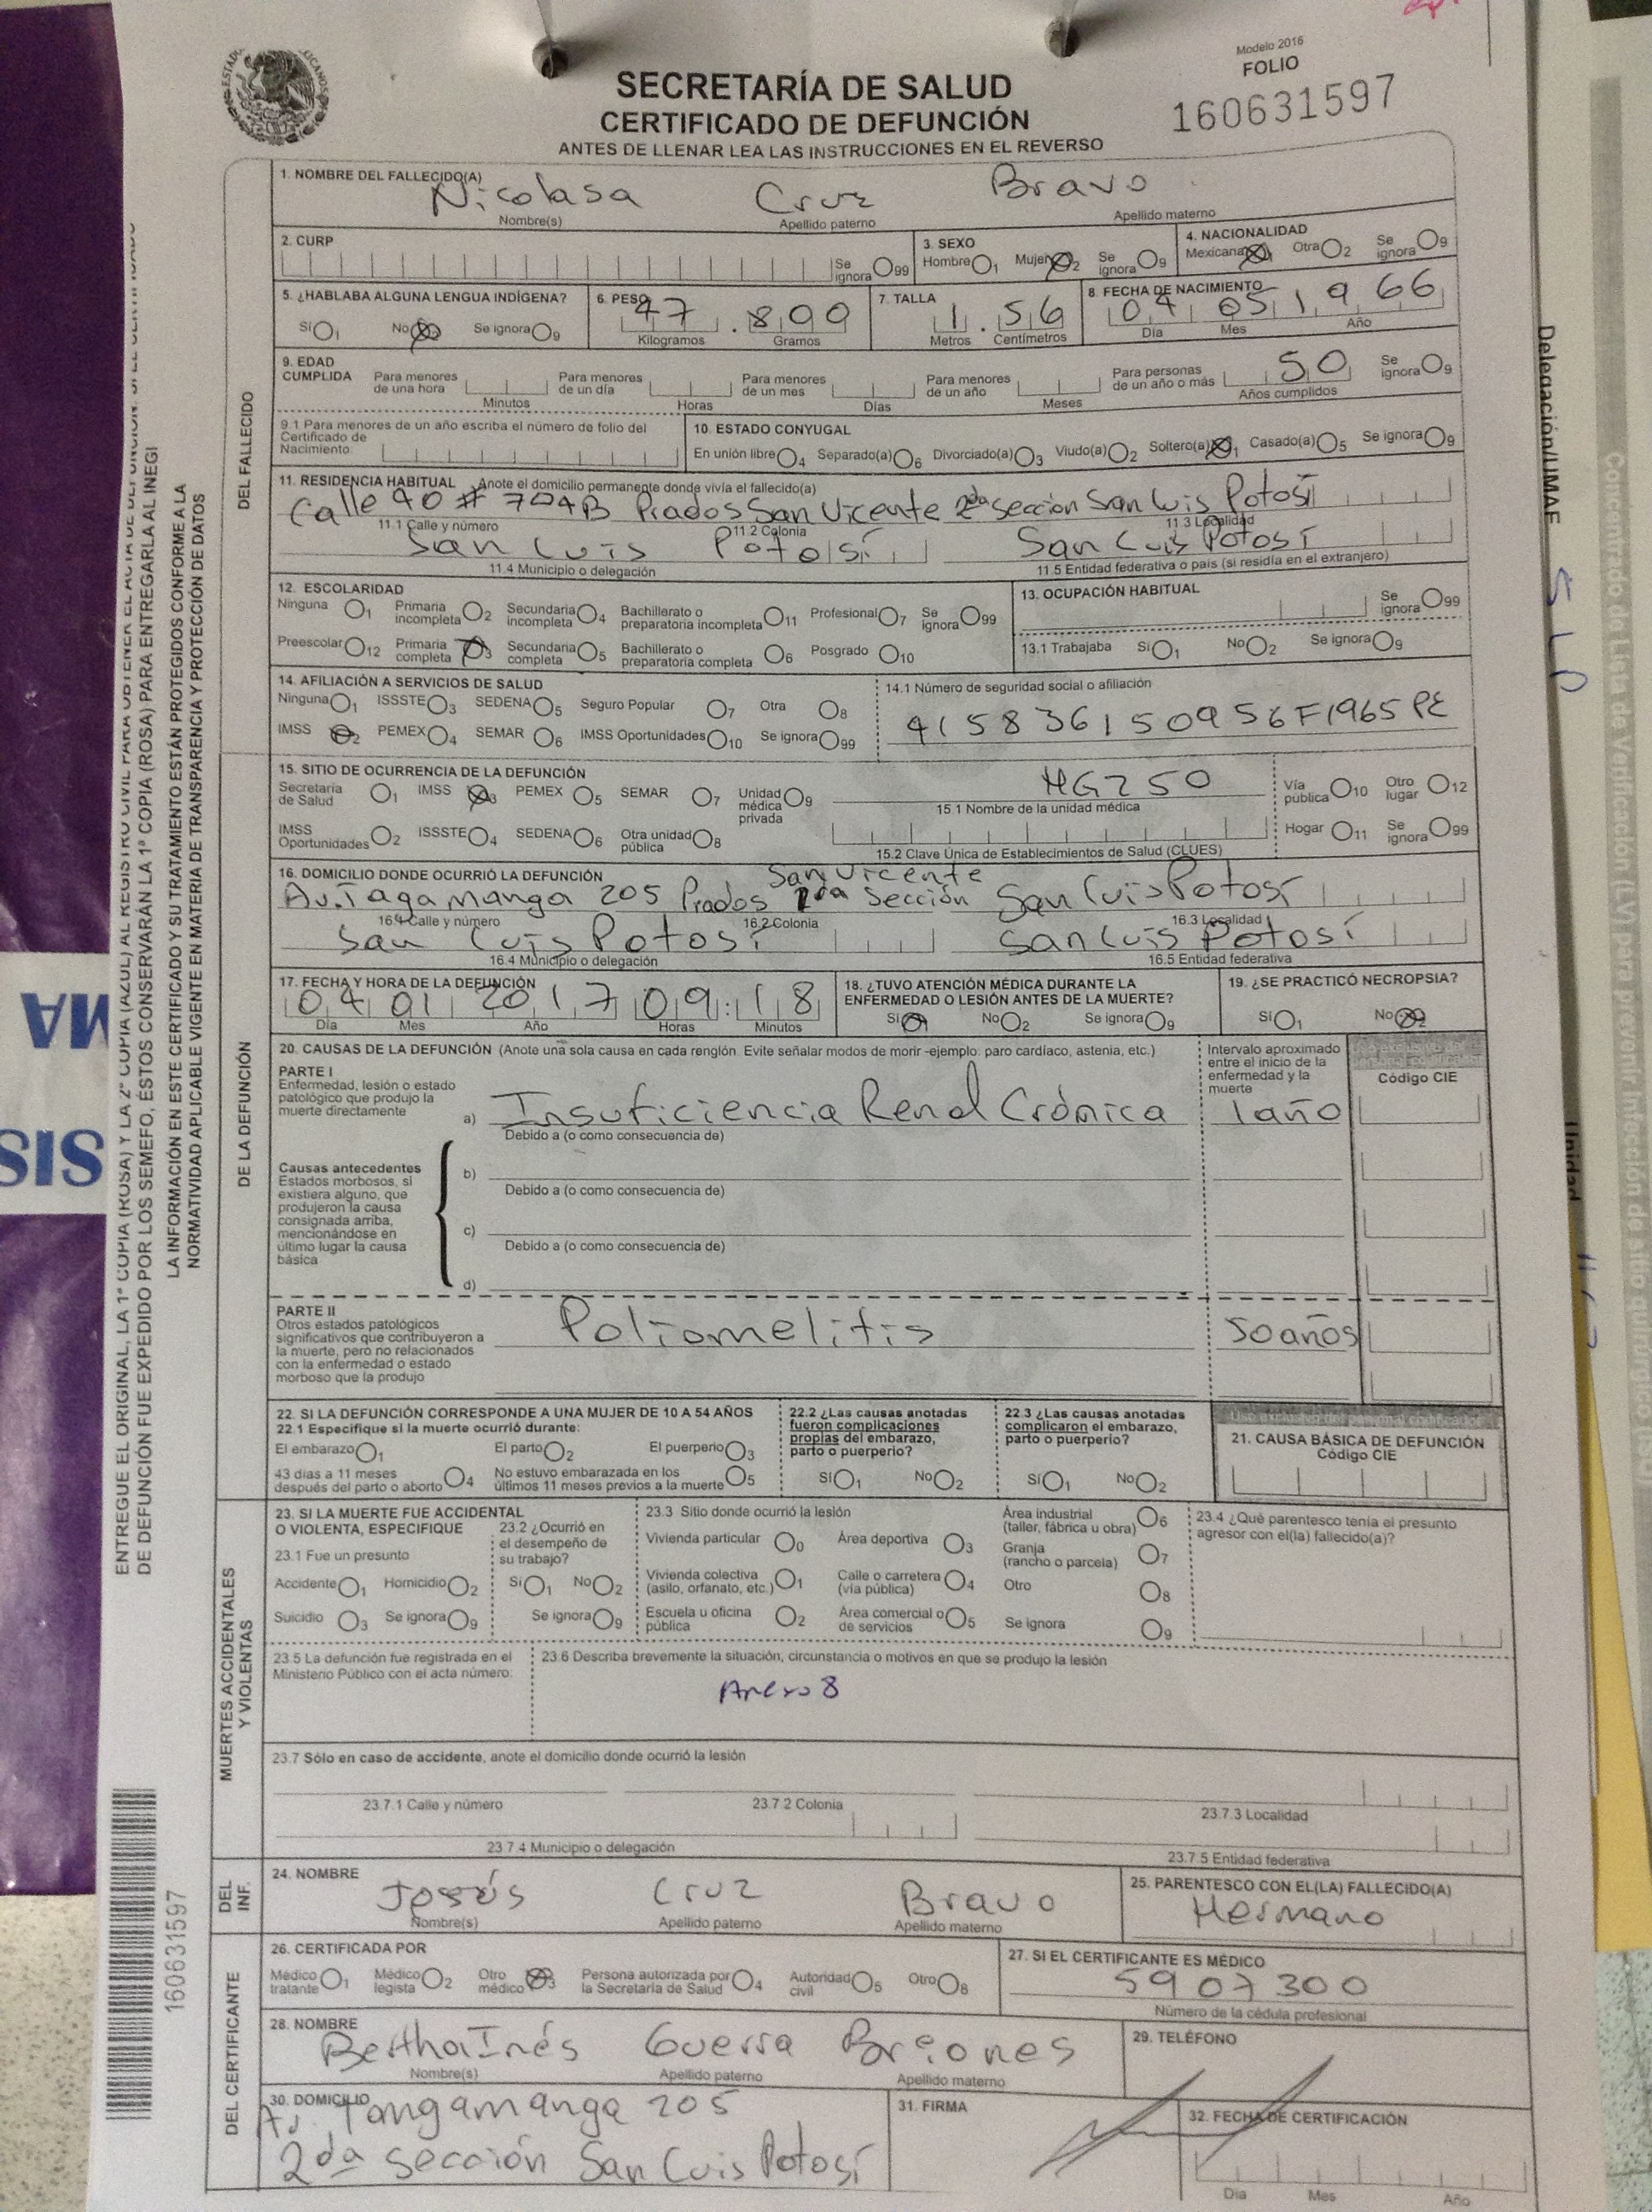 Modelo 2016
FOLIO
160631597
SECRETARÍA DE SALUD
CERTIFICADO DE DEFUNCIÓN
ANTES DE LLENAR LEA LAS INSTRUCCIONES EN EL REVERSO
1. NOMBRE DEL FALLECIDO(A)
Nicolasa Cruz Bravo
Nombre(s) Apellido paterno Apellido materno
2. CURP Se ignora 99 3. SEXO Hombre 1 Mujer 2 Se ignora 9 4. NACIONALIDAD Mexicana 1 Otra 2 Se ignora 9
5. ¿HABLABA ALGUNA LENGUA INDÍGENA? 6. PESO 7. TALLA 8. FECHA DE NACIMIENTO
Sí 1 No 2 Se ignora 9 47 . 800 1 . 56 04 05 1966
Kilogramos Gramos Metros Centímetros Día Mes Año
9. EDAD CUMPLIDA Para menores de una hora Para menores de un día Para menores de un mes Para menores de un año Para personas de un año o más 50 Se ignora 9
Minutos Horas Días Meses Años cumplidos
9.1 Para menores de un año escriba el número de folio del Certificado de Nacimiento
10. ESTADO CONYUGAL
En unión libre 4 Separado(a) 6 Divorciado(a) 3 Viudo(a) 2 Soltero(a) 1 Casado(a) 5 Se ignora 9
11. RESIDENCIA HABITUAL Anote el domicilio permanente donde vivía el fallecido(a)
Calle 40 # 704B Prados San Vicente 2da sección San Luis Potosí
11.1 Calle y número 11.2 Colonia 11.3 Localidad
San Luis Potosí San Luis Potosí
11.4 Municipio o delegación 11.5 Entidad federativa o país (si residía en el extranjero)
12. ESCOLARIDAD
Ninguna 1 Primaria incompleta 2 Secundaria incompleta 4 Bachillerato o preparatoria incompleta 11 Profesional 7 Se ignora 99
Preescolar 12 Primaria completa 3 Secundaria completa 5 Bachillerato o preparatoria completa 6 Posgrado 10
13. OCUPACIÓN HABITUAL Se ignora 99
13.1 Trabajaba Sí 1 No 2 Se ignora 9
14. AFILIACIÓN A SERVICIOS DE SALUD
Ninguna 1 ISSSTE 3 SEDENA 5 Seguro Popular 7 Otra 8
IMSS 2 PEMEX 4 SEMAR 6 IMSS Oportunidades 10 Se ignora 99
14.1 Número de seguridad social o afiliación
415836150956F1965PE
15. SITIO DE OCURRENCIA DE LA DEFUNCIÓN
Secretaría de Salud 1 IMSS 3 PEMEX 5 SEMAR 7 Unidad médica privada 9
IMSS Oportunidades 2 ISSSTE 4 SEDENA 6 Otra unidad pública 8
HGZ50
15.1 Nombre de la unidad médica
15.2 Clave Única de Establecimientos de Salud (CLUES)
Vía pública 10 Otro lugar 12
Hogar 11 Se ignora 99
16. DOMICILIO DONDE OCURRIÓ LA DEFUNCIÓN
San Vicente
Av. Tagamanga 205 Prados 2da Sección San Luis Potosí
16.1 Calle y número 16.2 Colonia 16.3 Localidad
San Luis Potosí San Luis Potosí
16.4 Municipio o delegación 16.5 Entidad federativa
17. FECHA Y HORA DE LA DEFUNCIÓN
04 01 2017 09:18
Día Mes Año Horas Minutos
18. ¿TUVO ATENCIÓN MÉDICA DURANTE LA ENFERMEDAD O LESIÓN ANTES DE LA MUERTE?
Sí 1 No 2 Se ignora 9
19. ¿SE PRACTICÓ NECROPSIA?
Sí 1 No 2
20. CAUSAS DE LA DEFUNCIÓN (Anote una sola causa en cada renglón. Evite señalar modos de morir -ejemplo: paro cardíaco, astenia, etc.)
Intervalo aproximado entre el inicio de la enfermedad y la muerte
Código CIE
PARTE I
Enfermedad, lesión o estado patológico que produjo la muerte directamente
a) Insuficiencia Renal Crónica 1 año
Debido a (o como consecuencia de)
Causas antecedentes
Estados morbosos, si existiera alguno, que produjeron la causa consignada arriba, mencionándose en último lugar la causa básica
b)
Debido a (o como consecuencia de)
c)
Debido a (o como consecuencia de)
d)
PARTE II
Otros estados patológicos significativos que contribuyeron a la muerte, pero no relacionados con la enfermedad o estado morboso que la produjo
Poliomelitis 50 años
22. SI LA DEFUNCIÓN CORRESPONDE A UNA MUJER DE 10 A 54 AÑOS
22.1 Especifique si la muerte ocurrió durante:
El embarazo 1 El parto 2 El puerperio 3
43 días a 11 meses después del parto o aborto 4 No estuvo embarazada en los últimos 11 meses previos a la muerte 5
22.2 ¿Las causas anotadas fueron complicaciones propias del embarazo, parto o puerperio?
Sí 1 No 2
22.3 ¿Las causas anotadas complicaron el embarazo, parto o puerperio?
Sí 1 No 2
Uso exclusivo del personal codificador
21. CAUSA BÁSICA DE DEFUNCIÓN
Código CIE
23. SI LA MUERTE FUE ACCIDENTAL O VIOLENTA, ESPECIFIQUE
23.1 Fue un presunto
Accidente 1 Homicidio 2
Suicidio 3 Se ignora 9
23.2 ¿Ocurrió en el desempeño de su trabajo?
Sí 1 No 2
Se ignora 9
23.3 Sitio donde ocurrió la lesión
Vivienda particular 0 Área deportiva 3 Área industrial (taller, fábrica u obra) 6
Vivienda colectiva (asilo, orfanato, etc.) 1 Calle o carretera (vía pública) 4 Granja (rancho o parcela) 7
Escuela u oficina pública 2 Área comercial o de servicios 5 Otro 8
Se ignora 9
23.4 ¿Qué parentesco tenía el presunto agresor con el(la) fallecido(a)?
23.5 La defunción fue registrada en el Ministerio Público con el acta número:
23.6 Describa brevemente la situación, circunstancia o motivos en que se produjo la lesión
Anexo 8
23.7 Sólo en caso de accidente, anote el domicilio donde ocurrió la lesión
23.7.1 Calle y número 23.7.2 Colonia 23.7.3 Localidad
23.7.4 Municipio o delegación 23.7.5 Entidad federativa
24. NOMBRE
Josés Cruz Bravo
Nombre(s) Apellido paterno Apellido materno
25. PARENTESCO CON EL(LA) FALLECIDO(A)
Hermano
26. CERTIFICADA POR
Médico tratante 1 Médico legista 2 Otro médico 3 Persona autorizada por la Secretaría de Salud 4 Autoridad civil 5 Otro 8
27. SI EL CERTIFICANTE ES MÉDICO
5907300
Número de la cédula profesional
28. NOMBRE
Bertha Inés Guerra Briones
Nombre(s) Apellido paterno Apellido materno
29. TELÉFONO
30. DOMICILIO
Av. Tangamanga 205
2da sección San Luis Potosí
31. FIRMA
32. FECHA DE CERTIFICACIÓN
Día Mes Año
DEL FALLECIDO
DE LA DEFUNCIÓN
MUERTES ACCIDENTALES Y VIOLENTAS
DEL INF.
DEL CERTIFICANTE
DE DEFUNCIÓN FUE EXPEDIDO POR LOS SEMEFO, ÉSTOS CONSERVARÁN LA 1ª COPIA (ROSA) PARA ENTREGARLA AL INEGI
LA INFORMACIÓN EN ESTE CERTIFICADO Y SU TRATAMIENTO ESTÁN PROTEGIDOS CONFORME A LA
NORMATIVIDAD APLICABLE VIGENTE EN MATERIA DE TRANSPARENCIA Y PROTECCIÓN DE DATOS
160631597
SIS
Delegación/UMAE
SLP
Unidad